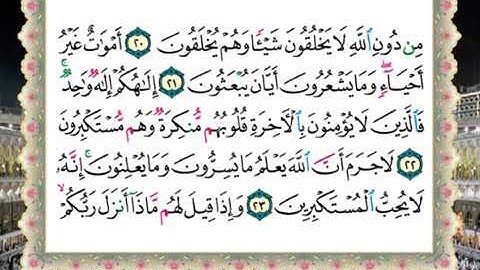 مِن دُونِ ٱللَّهِ لَا يَخْلُقُونَ شَيْـًٔا وَهُمْ يُخْلَقُونَ ٢٠ أَمْوَٰتٌ غَيْرُ
أَحْيَآءٍ وَمَا يَشْعُرُونَ أَيَّانَ يُبْعَثُونَ ٢١ إِلَـٰهُكُمْ إِلَـٰهٌ وَٰحِدٌ ۚ
فَٱلَّذِينَ لَا يُؤْمِنُونَ بِٱلْـَٔاخِرَةِ قُلُوبُهُم مُّنكِرَةٌ وَهُم مُّسْتَكْبِرُونَ
٢٢ لَا جَرَمَ أَنَّ ٱللَّهَ يَعْلَمُ مَا يُسِرُّونَ وَمَا يُعْلِنُونَ ۚ إِنَّهُۥ
لَا يُحِبُّ ٱلْمُسْتَكْبِرِينَ ٢٣ وَإِذَا قِيلَ لَهُم مَّاذَآ أَنزَلَ رَبُّكُمْ ۙ